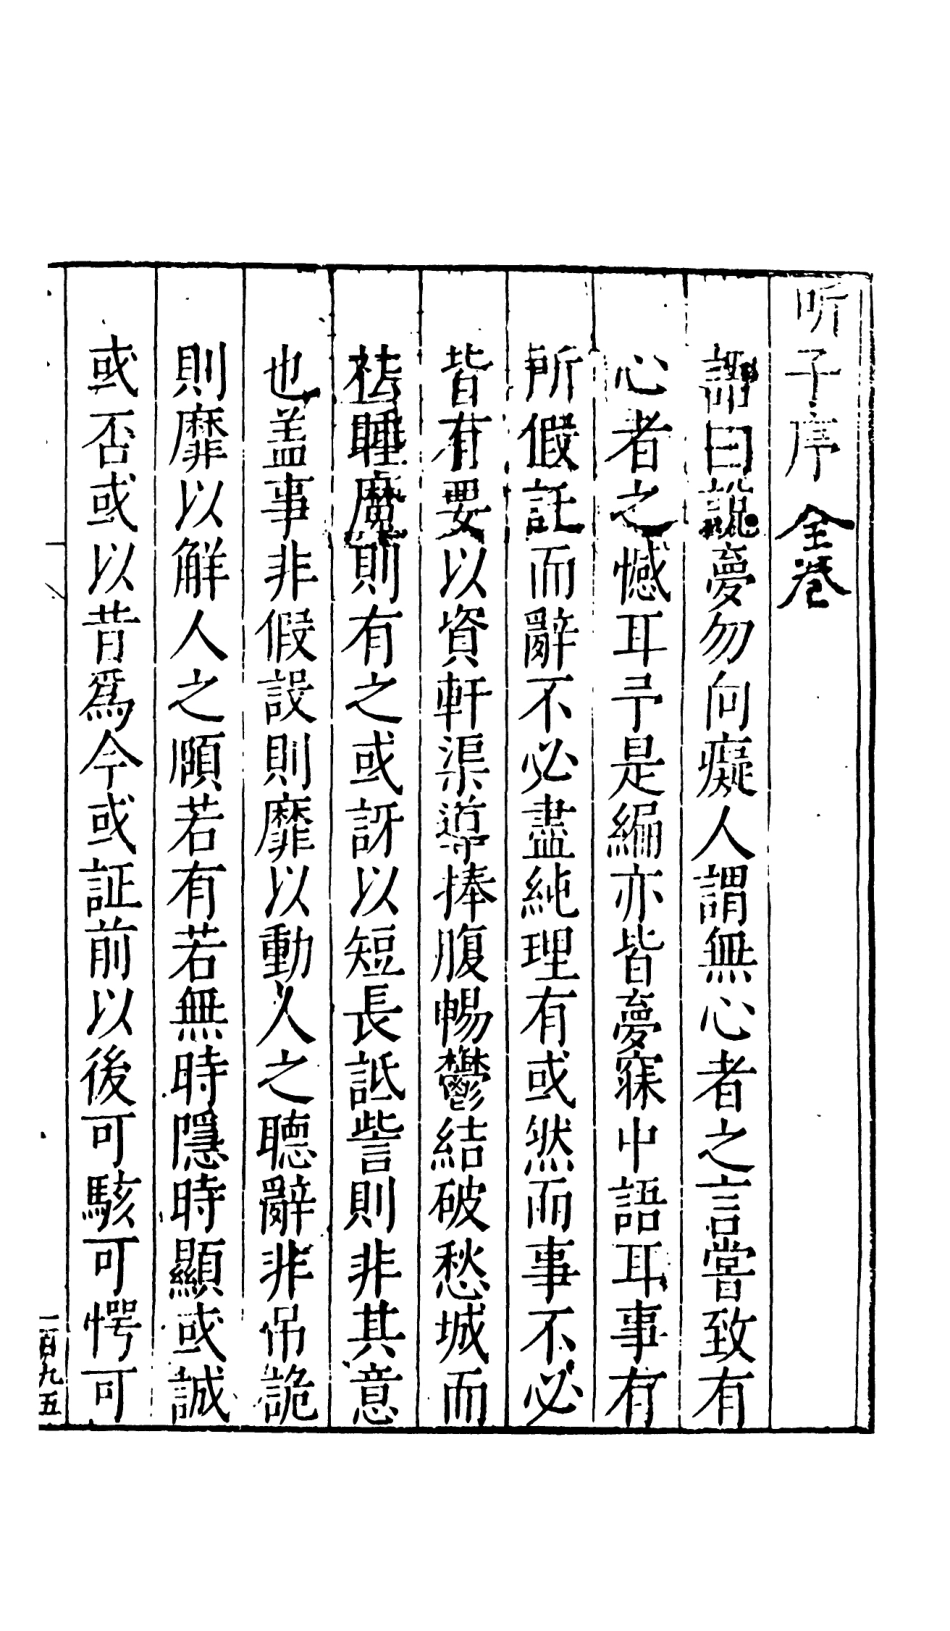 听子序 全卷
諺曰說夢勿向癡人謂無心者之言嘗致有
心者之憾耳予是編亦皆夢寐中語耳事有
所假託而辭不必盡純理有或然而事不必
皆有要以資軒渠導捧腹暢鬱結破愁城而
祛睡魔則有之或訝以短長詆訾則非其意
也盖事非假設則靡以動人之聽辭非吊詭
則靡以解人之頤若有若無時隱時顯或誠
或否或以昔爲今或証前以後可駭可愕可
一百九五